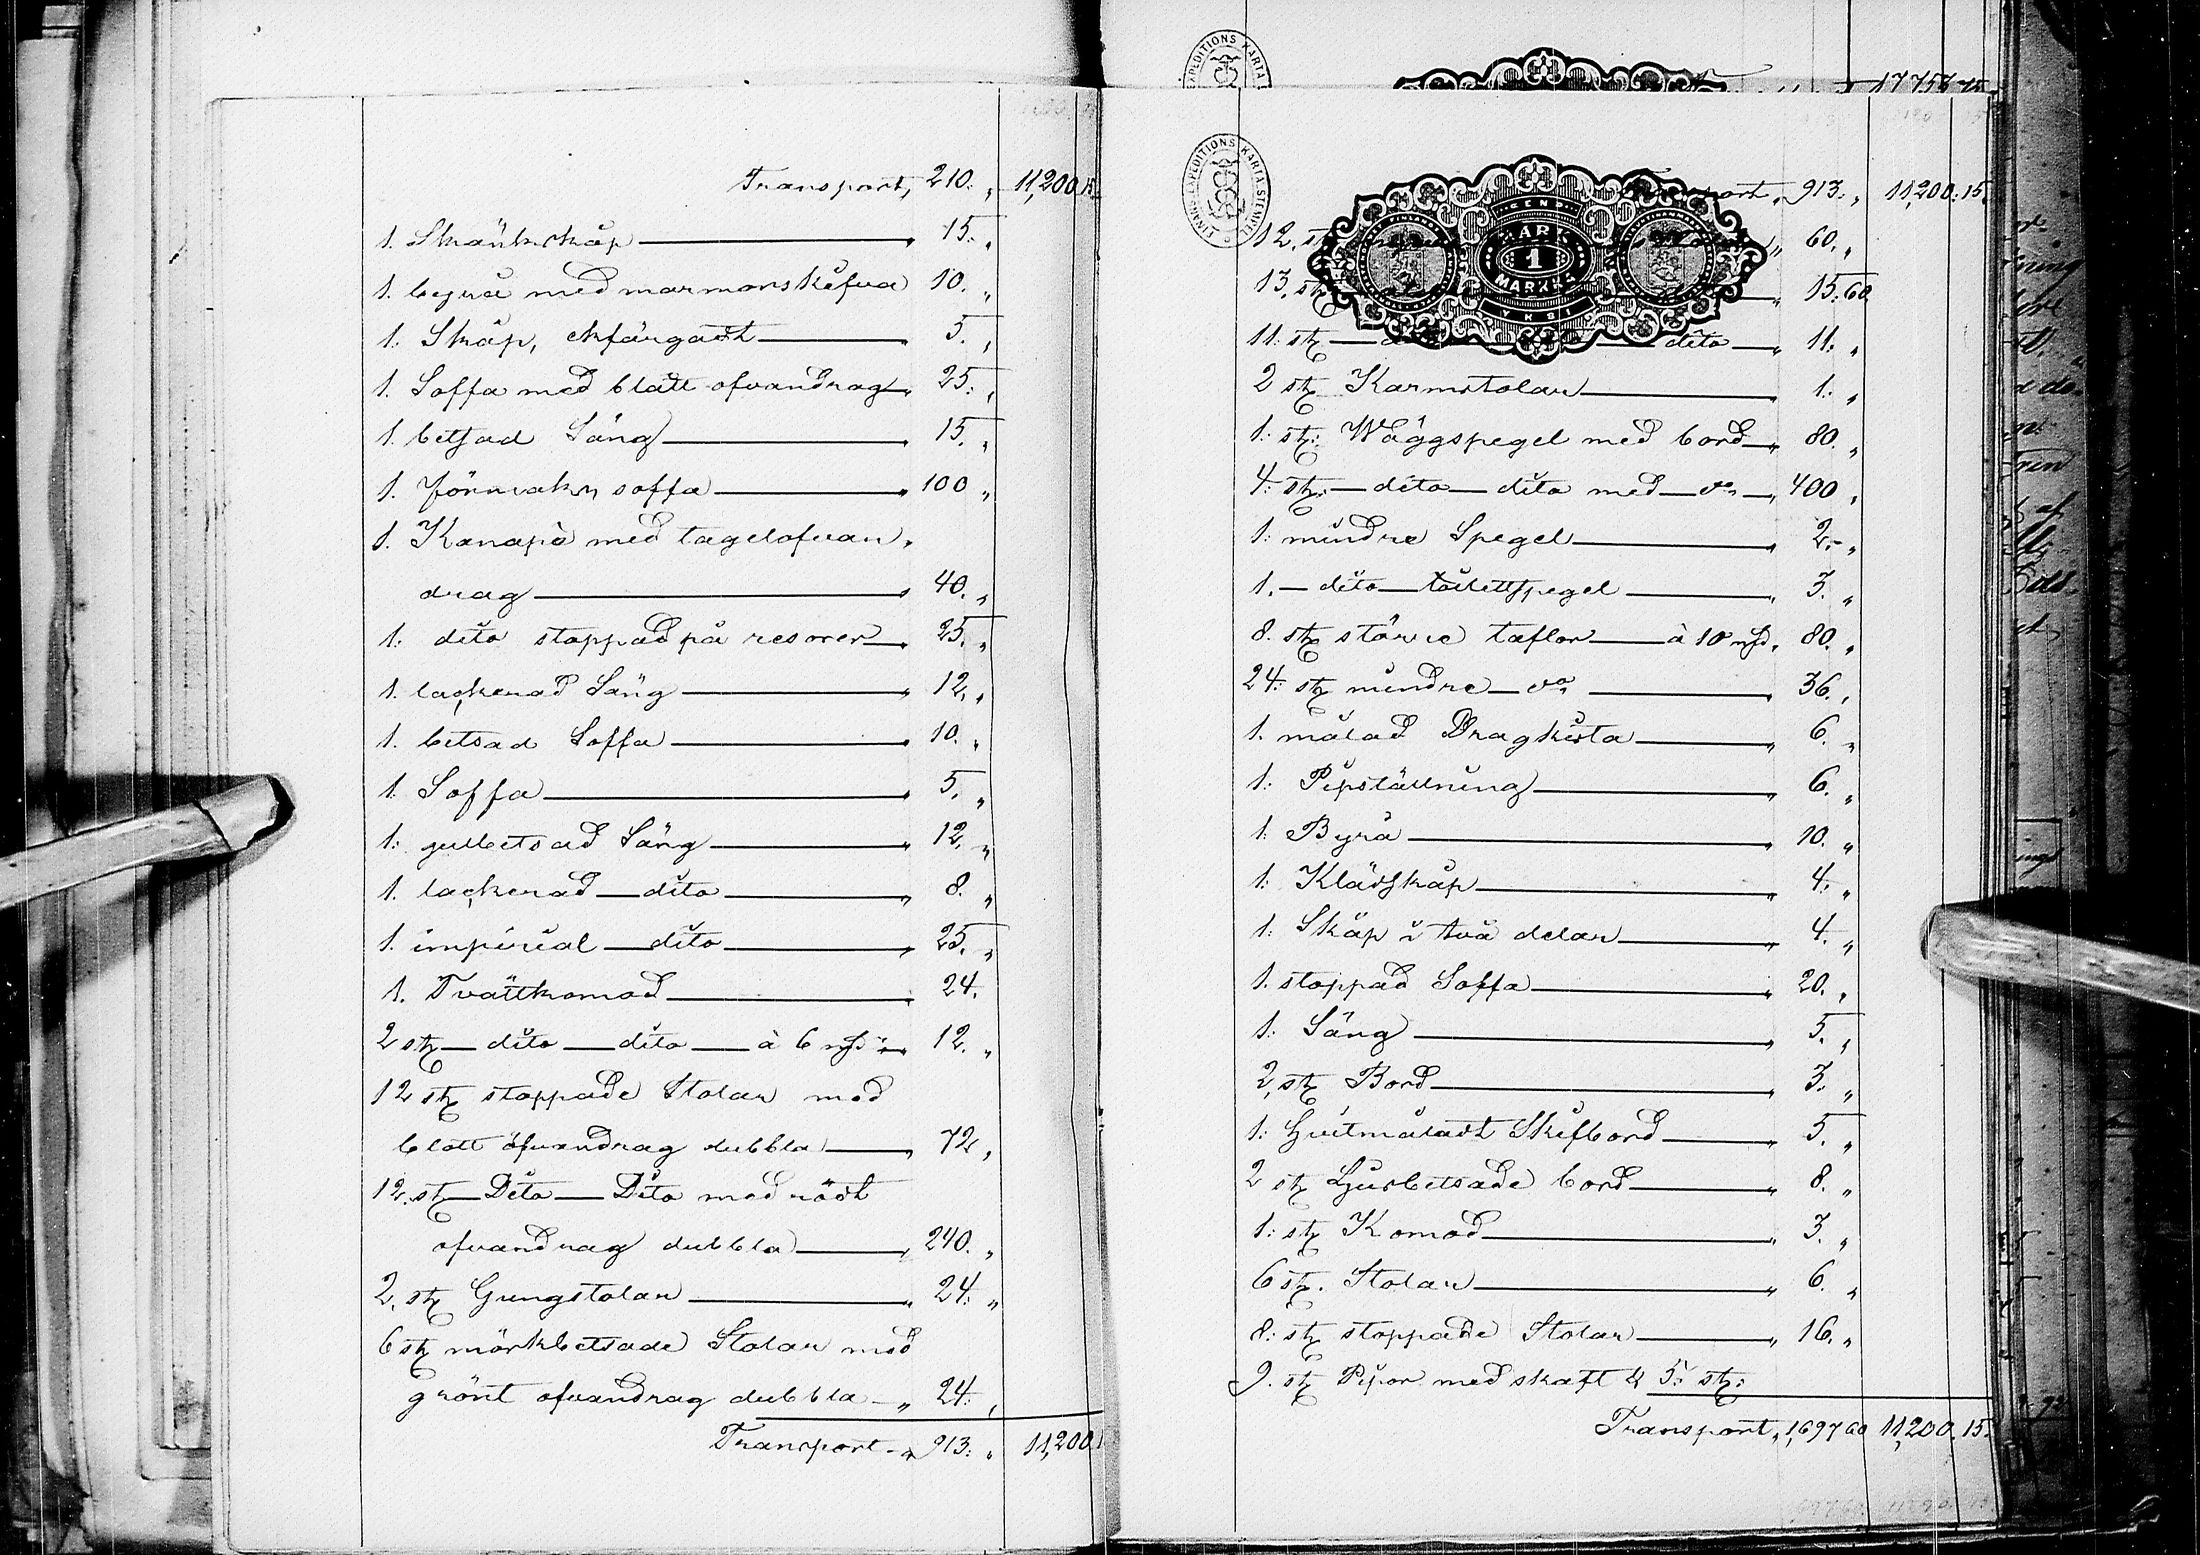 Transport, 210. „ 11,200.15.
1. Skänkskåp — „ 15. „
1. byrå med marmorskifva 10. „
1. Skåp, ekfärgadt — „ 5. „
1. Soffa med blått ofvandrag „ 25. „
1. betsad Säng — „ 15. „
1. förmaks soffa — „ 100 „
1. Kanapè med tagelofvan.
drag — „ 40. „
1. dito stoppad på resorer — „ 25. „
1. lackerad Säng — „ 12. „
1. betsad Soffa — „ 10. „
1. Soffa — „ 5. „
1. gulbetsad Säng — „ 12. „
1. lackerad — dito — „ 8. „
1. imperial — dito — „ 25. „
1. Tvättkomod — „ 24.
2 st — dito — dito — à 6 mf „ 12. „
12 st stoppade Stolar med
blått öfvandrag dubbla — „ 72 „
12. st — Dito — Dito med rödt
ofvandrag dubbla — „ 240. „
2. st Gungstolar — „ 24. „
6 st mörkbetsade Stolar med
grönt ofvandrag dubbla — „ 24. „
Transport — „ 913. „ 11,200.
17757 15.
EXPEDITIONS KARTA
FINNL. EXPEDITIONS KARTA-STEMPEL
EN MARK 1 MARKKA YKSI
Transport „ 913. „ 11,200.15.
12. st „ 60. „
13. st „ 15.60
11. st — dito — „ 11. „
2 st Karmstolar — „ 1. „
1. st. Wäggspegel med bord — „ 80. „
4. st. — dito — dito med — do — „ 400 „
1. mindre Spegel — „ 2.- „
1. — dito — toilettspegel — „ 3. „
8. st större taflor — à 10 mf. 80. „
24. st mindre — do — „ 36. „
1. målad Dragkista — „ 6. „
1. Pipställning — „ 6. „
1. Byrå — „ 10. „
1. Klädskåp — „ 4. „
1. Skåp i två delar — „ 4. „
1. stoppad Soffa — „ 20. „
1. Säng — „ 5. „
2, st Bord — „ 3. „
1. Hvitmåladt Skifbord — „ 5. „
2 st Ljusbetsade bord — „ 8. „
1. st Komod — „ 3. „
6 st. Stolar — „ 6. „
8. st stoppade Stolar — „ 16. „
9. st Pipor med skaft & 5. st.
Transport „ 1,697 60 11,200.15.